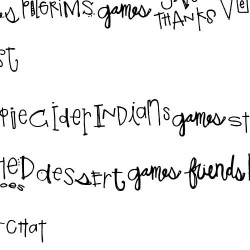 PILGRIMS games THANKS
st
pie cider INDIANS games st
dessert games friends
oes
chat